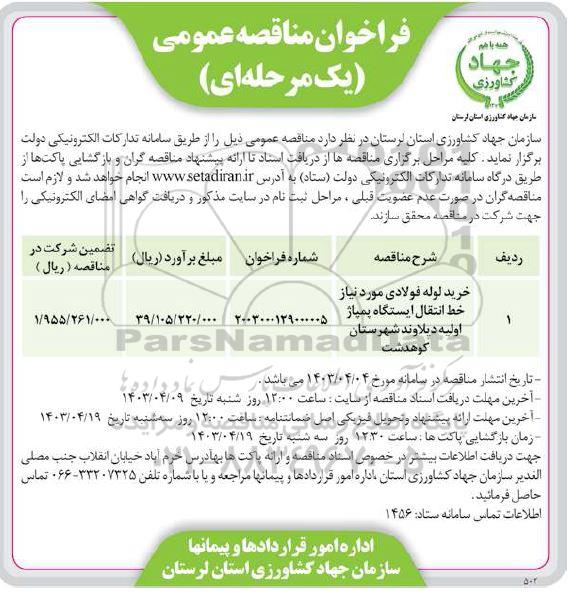 فراخوان مناقصه عمومی
(یک مرحله‌ای)
همه با هم
جهاد
کشاورزی
سازمان جهاد کشاورزی استان لرستان
سازمان جهاد کشاورزی استان لرستان در نظر دارد مناقصه عمومی ذیل را از طریق سامانه تدارکات الکترونیکی دولت
برگزار نماید . کلیه مراحل برگزاری مناقصه ها از دریافت اسناد تا ارائه پیشنهاد مناقصه گران و بازگشایی پاکت‌ها از
طریق درگاه سامانه تدارکات الکترونیکی دولت (ستاد) به آدرس www.setadiran.ir انجام خواهد شد و لازم است
مناقصه‌گران در صورت عدم عضویت قبلی ، مراحل ثبت نام در سایت مذکور و دریافت گواهی امضای الکترونیکی را
جهت شرکت در مناقصه محقق سازند.
ردیف شرح مناقصه شماره فراخوان مبلغ برآورد (ریال) تضمین شرکت در مناقصه ( ریال )
۱ خرید لوله فولادی مورد نیاز ۲۰۰۳۰۰۰۱۲۹۰۰۰۰۰۵ ۳۹/۱۰۵/۲۲۰/۰۰۰ ۱/۹۵۵/۲۶۱/۰۰۰
خط انتقال ایستگاه پمپاژ
اولیه دیلاوند شهرستان
کوهدشت
ParsNamadData
- تاریخ انتشار مناقصه در سامانه مورخ ۱۴۰۳/۰۴/۰۴ می باشد .
-آخرین مهلت دریافت اسناد مناقصه از سایت : ساعت ۱۲:۰۰ روز شنبه تاریخ ۱۴۰۳/۰۴/۰۹
-آخرین مهلت ارائه پیشنهاد و تحویل فیزیکی اصل ضمانتنامه : ساعت ۱۲:۰۰ روز سه‌شنبه تاریخ ۱۴۰۳/۰۴/۱۹
- زمان بازگشایی پاکت ها : ساعت ۱۲:۳۰ روز سه شنبه تاریخ ۱۴۰۳/۰۴/۱۹
جهت دریافت اطلاعات بیشتر در خصوص اسناد مناقصه و ارائه پاکت ها بهآدرس خرم آباد خیابان انقلاب جنب مصلی
الغدیر سازمان جهاد کشاورزی استان ،اداره امور قراردادها و پیمانها مراجعه و یا با شماره تلفن ۳۳۲۰۷۳۲۵-۰۶۶ تماس
حاصل فرمائید .
اطلاعات تماس سامانه ستاد: ۱۴۵۶
اداره امور قراردادها و پیمانها
سازمان جهاد کشاورزی استان لرستان
۵۰۲